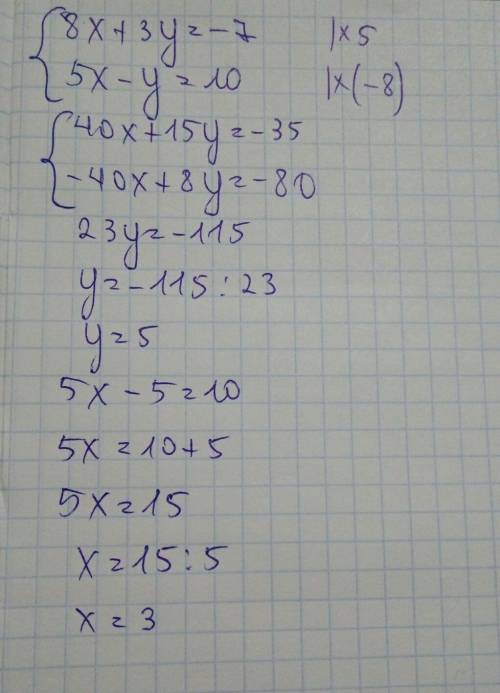 8x+3y=-7 |×5
5x-y=10 |×(-8)
40x+15y=-35
-40x+8y=-80
23y=-115
y=-115:23
y=5
5x-5=10
5x=10+5
5x=15
x=15:5
x=3